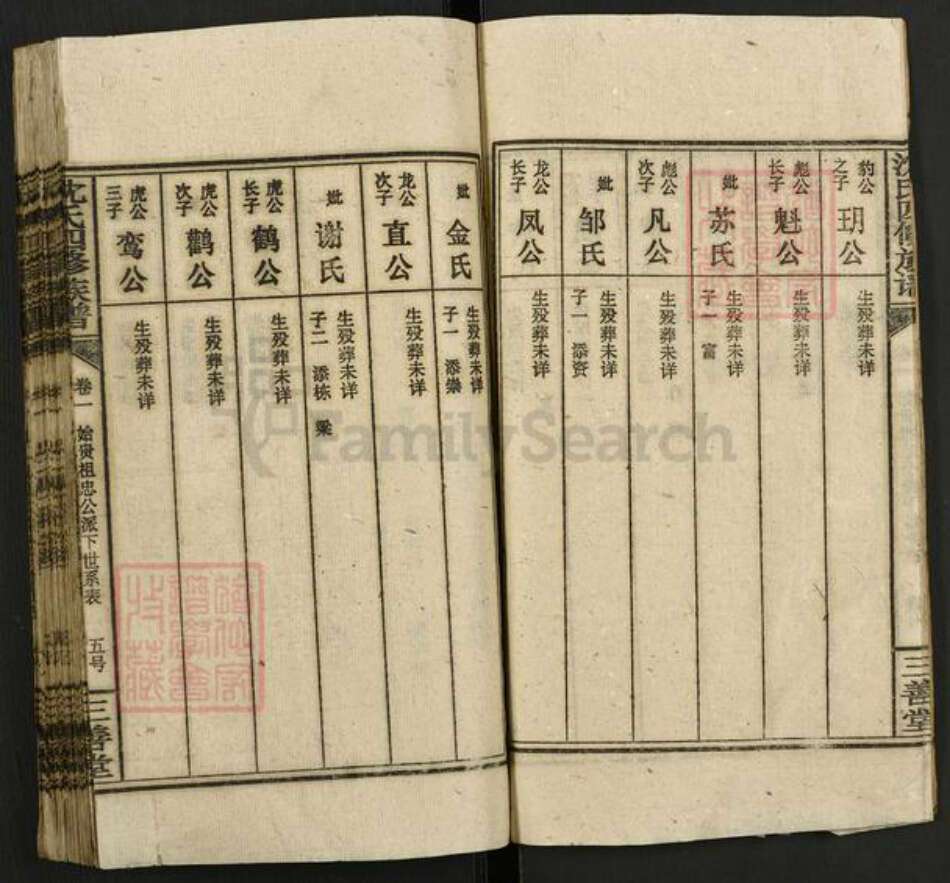 沈氏四修族谱
三善堂
豹公之子 玥公 生殁葬未详
彪公长子 魁公 生殁葬未详
妣 苏氏 生殁葬未详 子一 富
彪公次子 凡公 生殁葬未详
妣 邹氏 生殁葬未详 子一 添资
龙公长子 凤公 生殁葬未详
妣 金氏 生殁葬未详 子一 添崇
龙公次子 直公 生殁葬未详
妣 谢氏 生殁葬未详 子二 添栋 梁
虎公长子 鹤公 生殁葬未详
虎公次子 鹳公 生殁葬未详
虎公三子 鸾公 生殁葬未详
沈氏四修族谱 卷一 始贵祖忠公派下世系表 五号 三善堂
FamilySearch